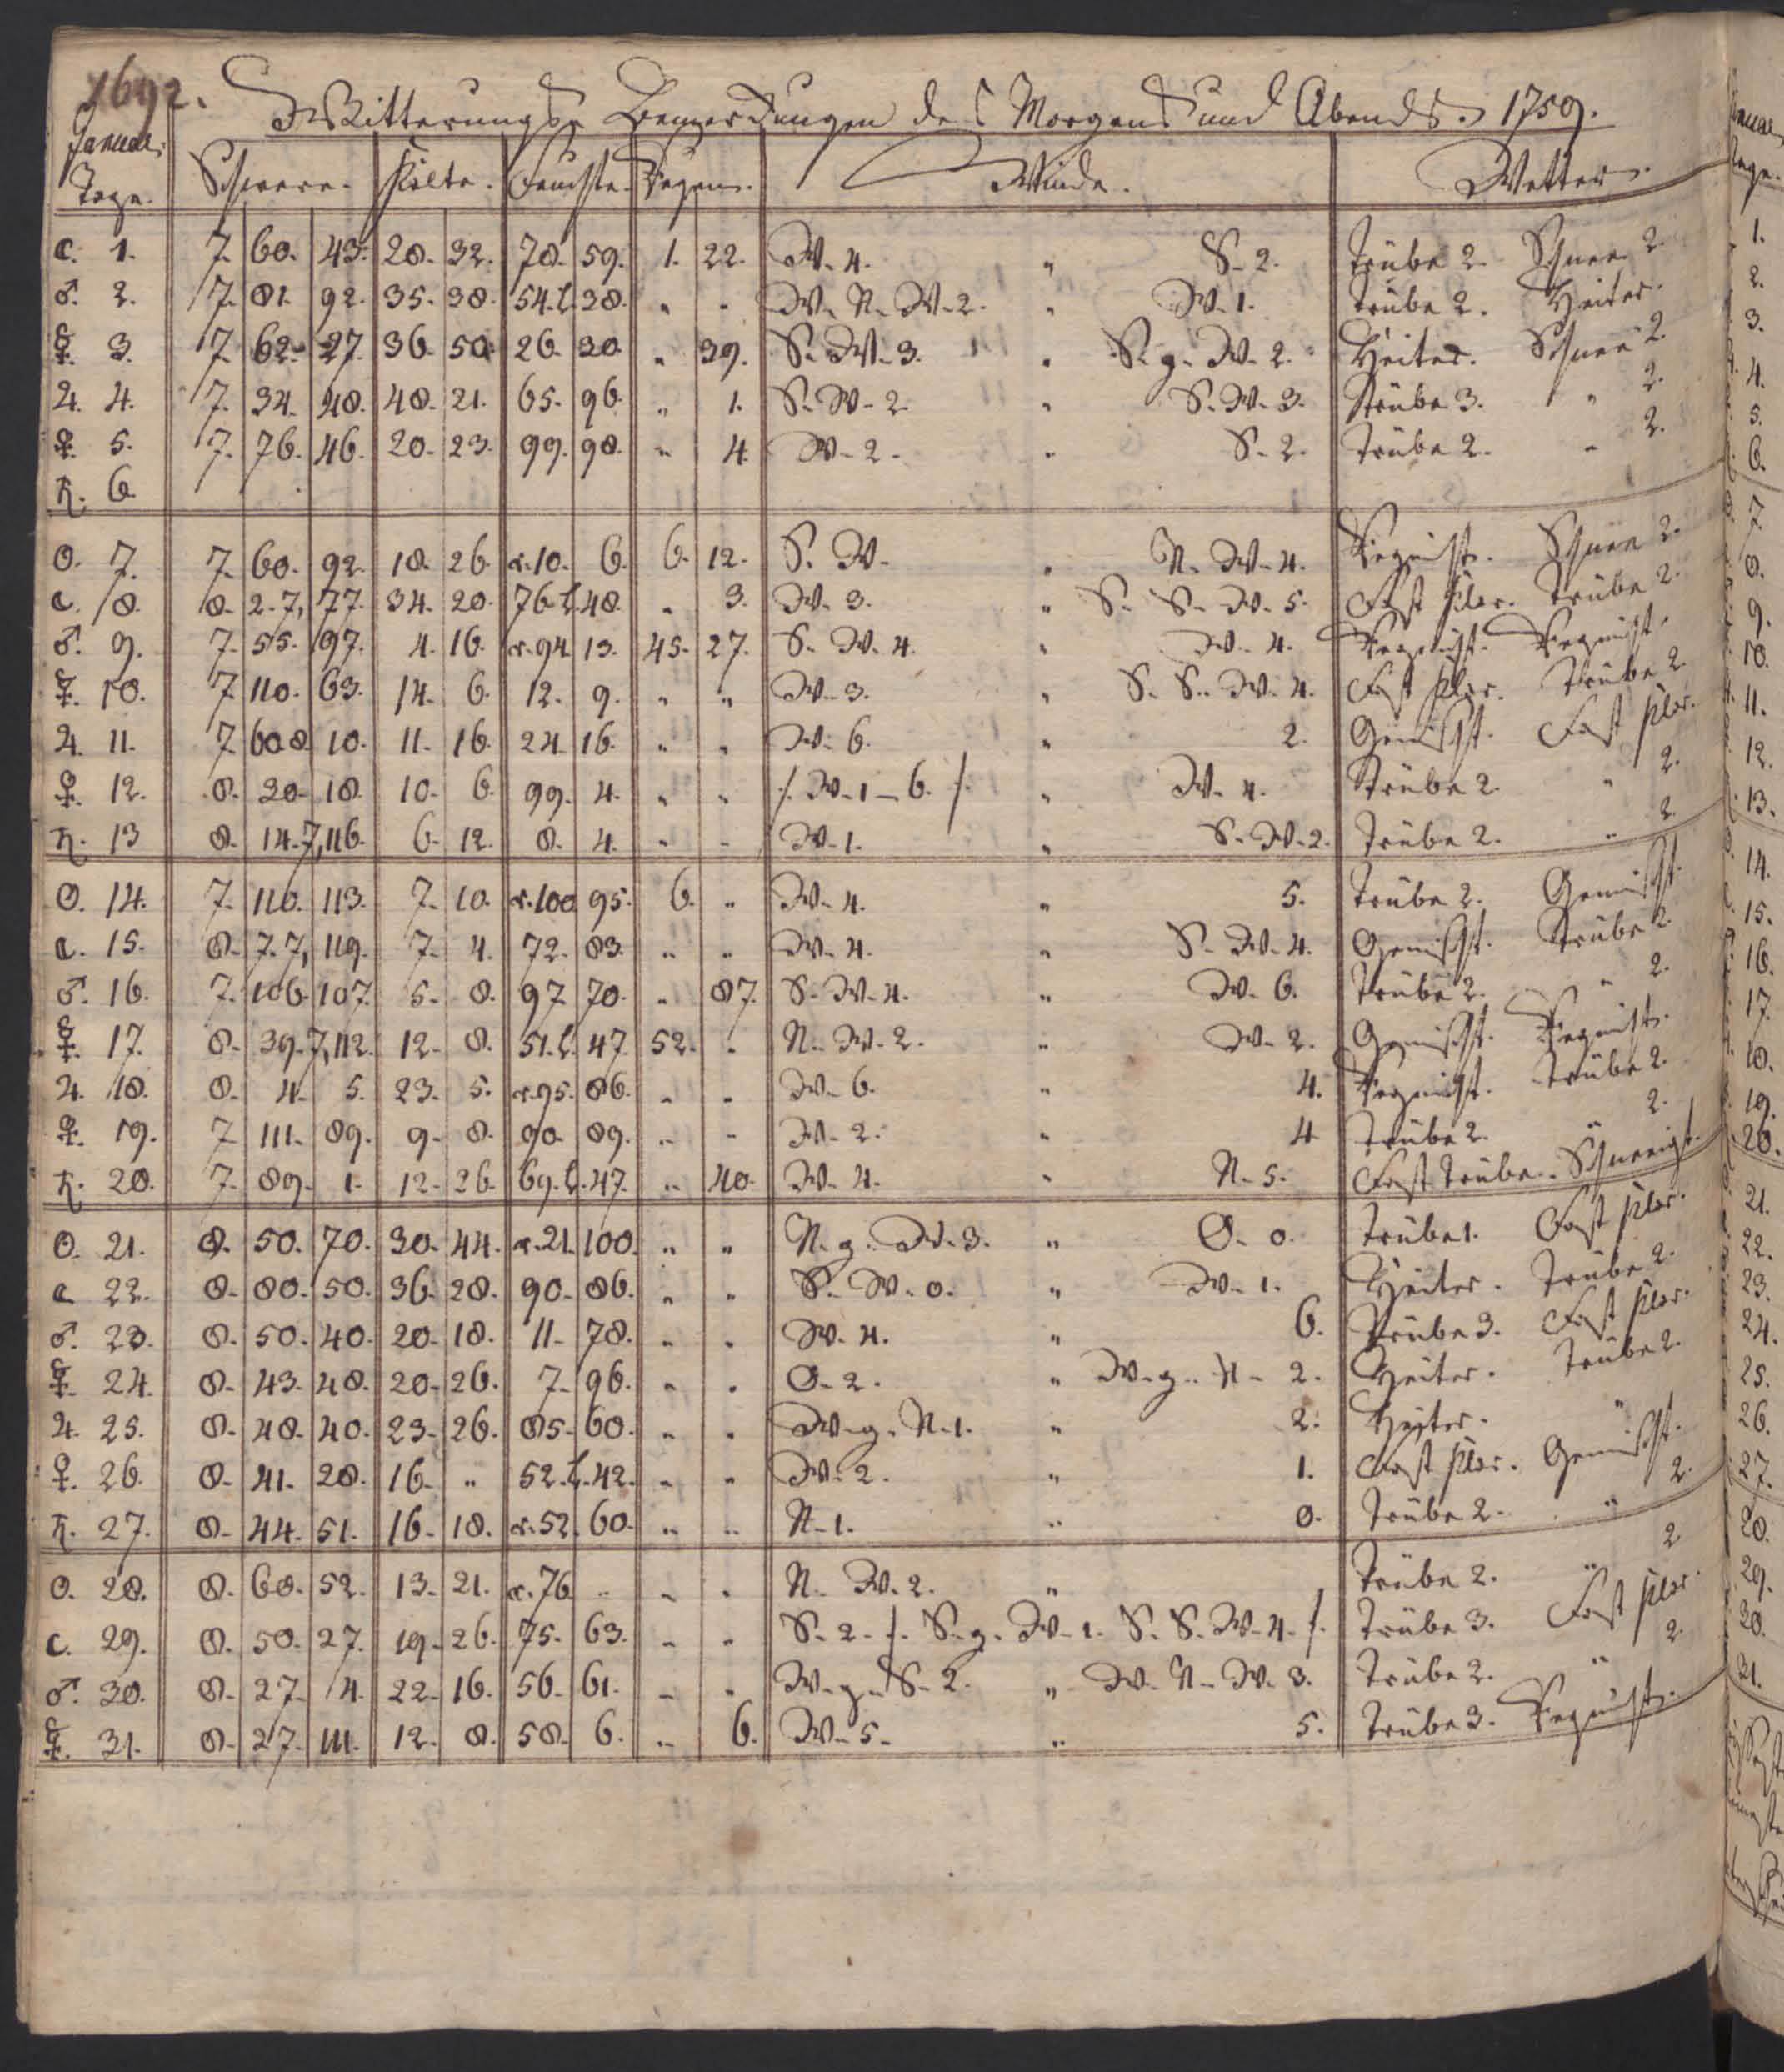 1692.
Witterungs Bemerckungen des Morgens und Abends. 1759.
Januar. Tage. Schwere. Kälte. Feuchte. Regen. Winde. Wetter.
☾. 1. 7. 60. 43. 28. 32. 78. 59. 1. 22. W. 4. " S. 2. Trübe 2. Schnee 2.
♂. 2. 7. 81. 92. 35. 38. 54. l. 38. " " W. N. W. 2. " W. 1. Trübe 2. Heiter.
☿. 3. 7. 62. 27. 36. 50. 26. 30. " 39. S. W. 3. " S. g. W. 2. Heiter. Schnee 2.
♃. 4. 7. 34. 48. 48. 21. 65. 96. " 1. S. W. 2. " S. W. 3. Trübe 3. " 2.
♀. 5. 7. 76. 46. 20. 23. 99. 98. " 4. W. 2. " S. 2. Trübe 2. " 2.
♄. 6.
☉. 7. 7. 60. 92. 18. 26. r. 10. 6. 6. 12. S. W. " N. W. 4. Regnicht. Schnee 2.
☾. 8. 8. 2. 7, 77. 34. 20. 76. l. 48. " 3. W. 3. " S. S. W. 5. Fast klar. Trübe 2.
♂. 9. 7. 55. 97. 4. 16. r. 94. 13. 45. 27. S. W. 4. " W. 4. Regnicht. Regnicht.
☿. 10. 7. 110. 63. 14. 6. 12. 9. " " W. 3. " S. S. W. 4. Fast klar. Trübe 2.
♃. 11. 7. 60. 8. 10. 11. 16. 24. 16. " " W. 6. " 2. Gemischt. Fast klar.
♀. 12. 8. 20. 18. 10. 6. 99. 4. " " /. W. 1 - 6. /. " W. 4. Trübe 2. " 2.
♄. 13. 8. 14. 7, 116. 6. 12. 8. 4. " " W. 1. " S. W. 2. Trübe 2. " 2.
☉. 14. 7. 110. 113. 7. 10. r. 100. 95. 6. " W. 4. " 5. Trübe 2. Gemischt.
☾. 15. 8. 7. 7, 119. 7. 4. 72. 83. " " W. 4. " S. W. 4. Gemischt. Trübe 2.
♂. 16. 7. 106. 107. 5. 8. 97. 70. " 87. S. W. 4. " W. 6. Trübe 2. " 2.
☿. 17. 8. 39. 7, 112. 12. 8. 51. l. 47. 52. " N. W. 2. " W. 2. Gemischt. Regnicht.
♃. 18. 8. 4. 5. 23. 5. r. 95. 86. " " W. 6. " 4. Regnicht. Trübe 2.
♀. 19. 7. 111. 89. 9. 8. 90. 89. " " W. 2. " 4. Trübe 2. " 2.
♄. 20. 7. 89. 1. 12. 26. 69. l. 47. " 40. W. 4. " N. 5. Fast trübe. Schneeigt.
☉. 21. 8. 50. 70. 30. 44. r. 21. 100. " " N. g. W. 3. " O. 0. Trübe 1. Fast klar.
☾. 22. 8. 80. 50. 36. 28. 90. 86. " " S. W. 0. " W. 1. Heiter. Trübe 2.
♂. 23. 8. 50. 40. 20. 18. 11. 78. " " W. 4. " 6. Trübe 3. Fast klar.
☿. 24. 8. 43. 48. 20. 26. 7. 96. " " O. 2. " W. g. N. 2. Heiter. Trübe 2.
♃. 25. 8. 48. 40. 23. 26. 85. 60. " " W. g. N. 1. " 2. Heiter. "
♀. 26. 8. 41. 28. 16. " 52. l. 42. " " W. 2. " 1. Fast klar. Gemischt.
♄. 27. 8. 44. 51. 16. 18. r. 52. 60. " " N. 1. " 0. Trübe 2. " 2.
☉. 28. 8. 60. 52. 13. 21. r. 76. " " " N. W. 2. " Trübe 2. " 2.
☾. 29. 8. 50. 27. 19. 26. 75. 63. " " S. 2. /. S. g. W. 1. S. S. W. 4. /. Trübe 3. Fast klar.
♂. 30. 8. 27. 4. 22. 16. 56. 61. " " W. g. S. 2. " W. N. W. 3. Trübe 2. " 2.
☿. 31. 8. 27. 111. 12. 8. 58. 6. " 6. W. 5. " 5. Trübe 3. Regnicht.